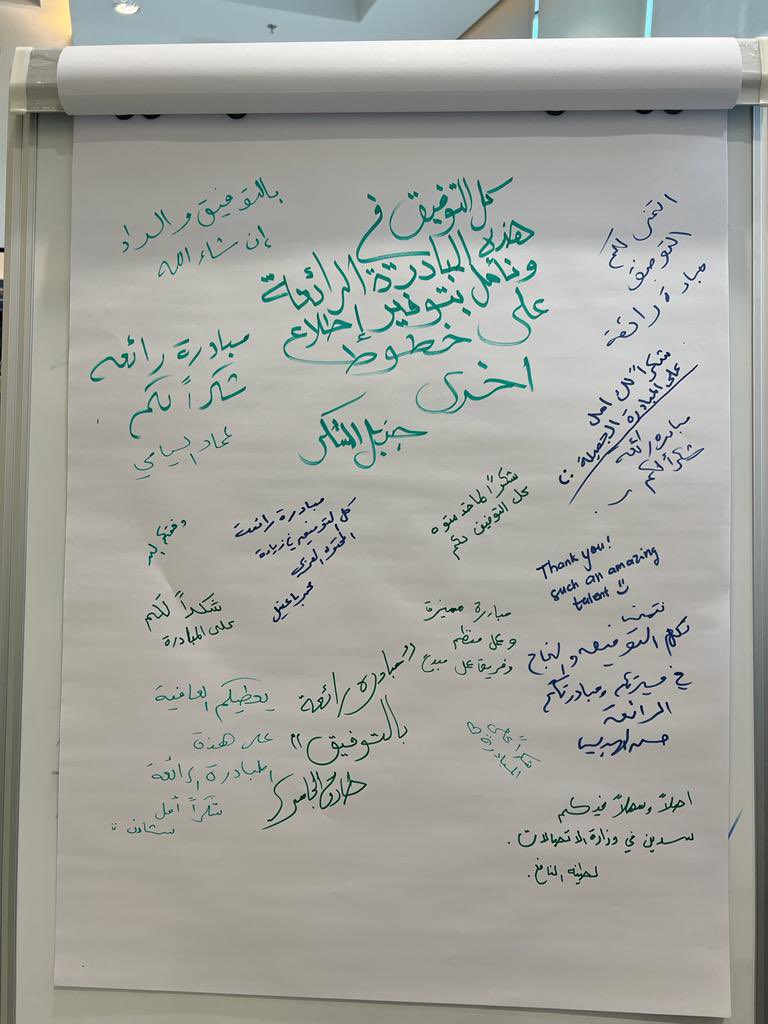 بالتوفيق والسداد
إن شاء الله
كل التوفيق في
هذه المبادرة الرائعة
ونأمل بتوفير إطلاع
على خطوط
اخرى
جزيل الشكر
اتمنى لكم
التوفيق
مبادرة رائعة
مبادرة رائعه
شكراً لكم
عماد
شكراً لك امل
على المبادرة الجميلة :)
مبادره رائعه
شكراً لكم
شكراً لما قدمتوه
كل التوفيق لكم
مبادرة رائعة
كل التوفيق في زيادة
المحتوى العربي
وفقكم الله
شكراً لكم
على المبادرة
Thank you!
such an amazing
talent
مبادرة مميزة
وعمل منظم
وفريق عمل مبدع
نتمنى
لكم التوفيق والنجاح
في مسيرتكم ومبادرتكم
الرائعة
المبادرة رائعة
بالتوفيق "
يعطيكم العافية
على هذة
المبادرة الرائعة
شكراً أمل
شكراً على
المبادرة
اهلاً وسهلاً فيكم
في وزارة الاتصالات .